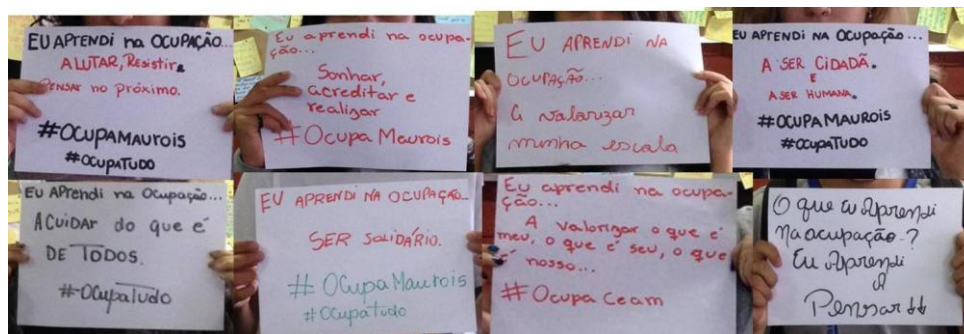 EU APRENDI na OCUPAÇÃO...
A LUTAR, Resistir e
PENSAR no PRÓXIMO.
#OCUPAMAUROIS
#OCUPATUDO
Eu aprendi na ocupa-
ção...
Sonhar,
acreditar e
realizar
#Ocupa Maurois
EU APRENDI NA
OCUPAÇÃO...
A valorizar
minha escola
EU APRENDI NA OCUPAÇÃO...
A SER CIDADÃ.
E
A SER HUMANA.
#OCUPAMAUROIS
#OcupaTUDO
EU APRendi na Ocupação...
A CUIDAR do que é
DE TODOS.
#OcupaTudo
EU APRENDI NA OCUPAÇÃO...
SER SOLIDÁRIO.
#OcupaMaurois
#Ocupatudo
Eu aprendi na ocupa-
ção...
A valorizar o que é
meu, o que é seu, o que
é nosso...
#Ocupa Ceam
O que eu Aprendi
na ocupação?
Eu Aprendi
A
Pensar!!